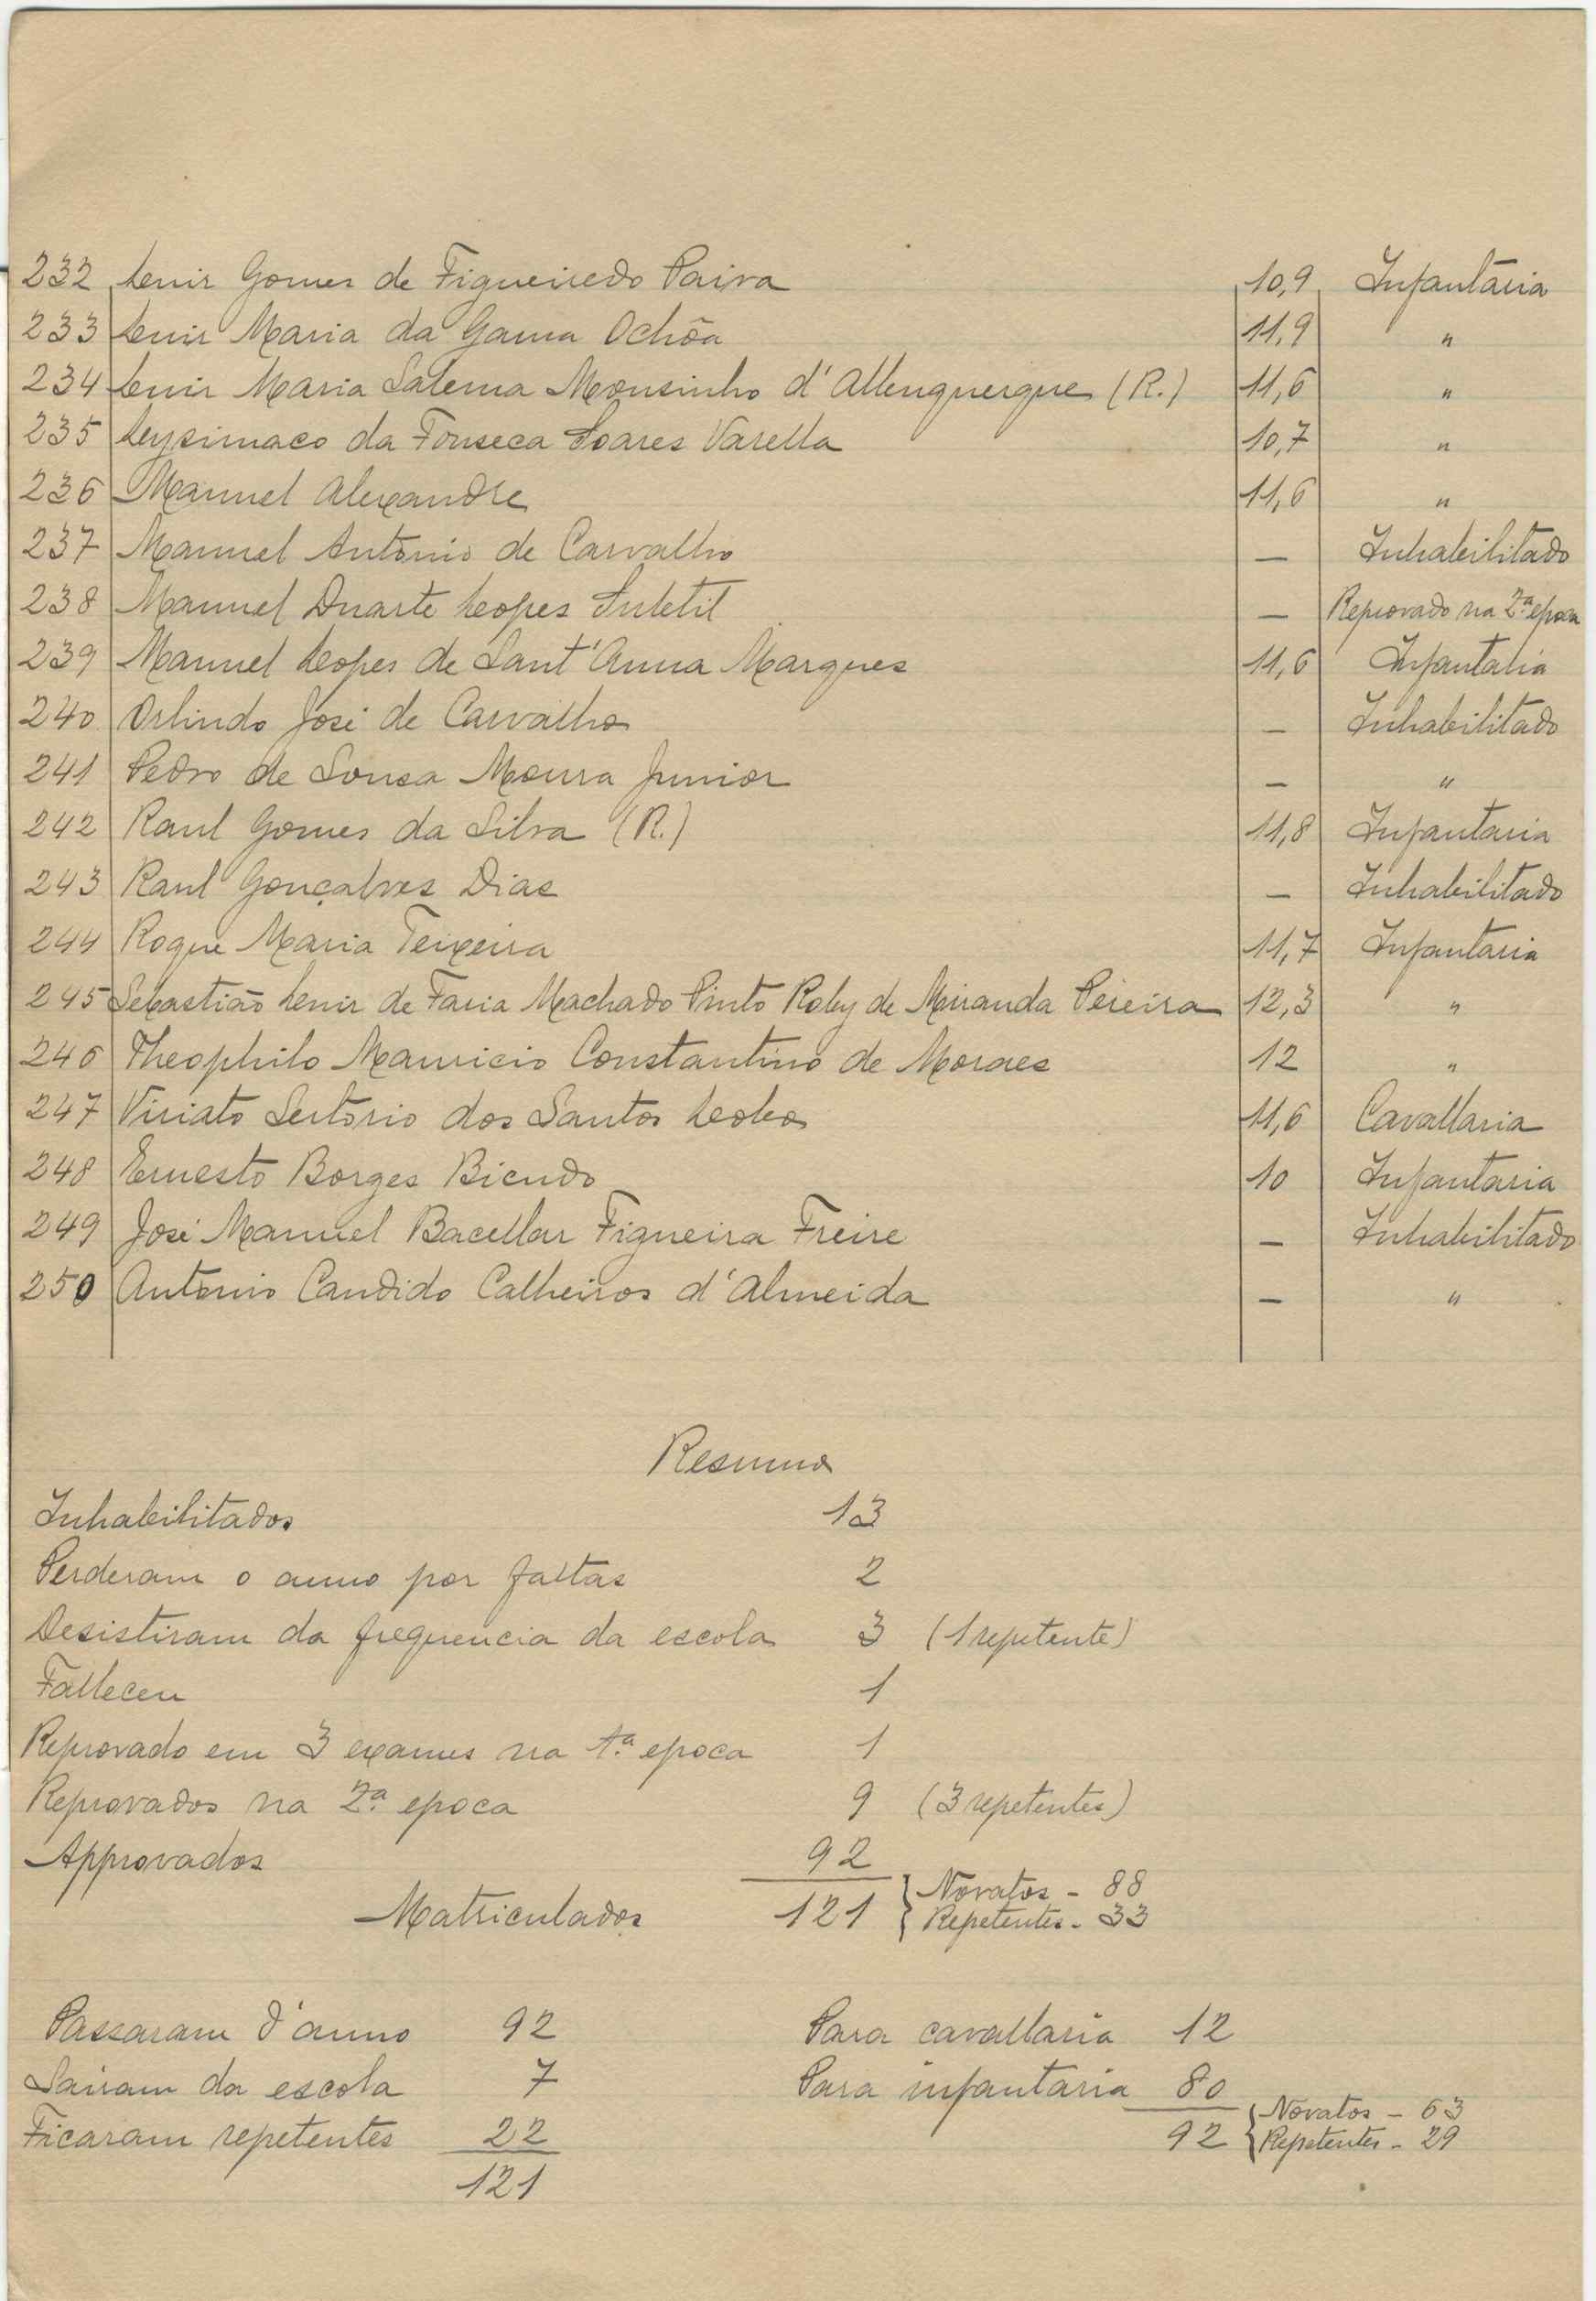 232 Luiz Gomes de Figueiredo Paiva 10,9 Infantaria
233 Luiz Maria da Gama Ochôa 11,9 "
234 Luiz Maria Salema Mousinho d'Albuquerque (R.) 11,6 "
235 Lysimaco da Fonseca Soares Varella 10,7 "
236 Manuel Alexandre 11,6 "
237 Manuel Antonio de Carvalho — Inhabilitado
238 Manuel Duarte Lopes Subtil — Reprovado na 2.ª epoca
239 Manuel Lopes de Sant'Anna Marques 11,6 Infantaria
240 Orlindo José de Carvalho — Inhabilitado
241 Pedro de Sousa Moura Junior — "
242 Raul Gomes da Silva (R.) 11,8 Infantaria
243 Raul Gonçalves Dias — Inhabilitado
244 Roque Maria Teixeira 11,7 Infantaria
245 Sebastião Luiz de Faria Machado Pinto Roby de Miranda Pereira 12,3 "
246 Theophilo Mauricio Constantino de Moraes 12 "
247 Viriato Sertorio dos Santos Lobo 11,6 Cavallaria
248 Ernesto Borges Bicudo 10 Infantaria
249 José Manuel Bacellar Figueira Freire — Inhabilitado
250 Antonio Candido Calheiros d'Almeida — "
Resumo
Inhabilitados 13
Perderam o anno por faltas 2
Desistiram da frequencia da escola 3 (1 repetente)
Falleceu 1
Reprovado em 3 exames na 1.ª epoca 1
Reprovados na 2.ª epoca 9 (3 repetentes)
Approvados 92
Matriculados 121 { Novatos - 88
Repetentes - 33
Passaram d'anno 92 Para cavallaria 12
Sairam da escola 7 Para infantaria 80
Ficaram repetentes 22 92 { Novatos - 63
Repetentes - 29
121